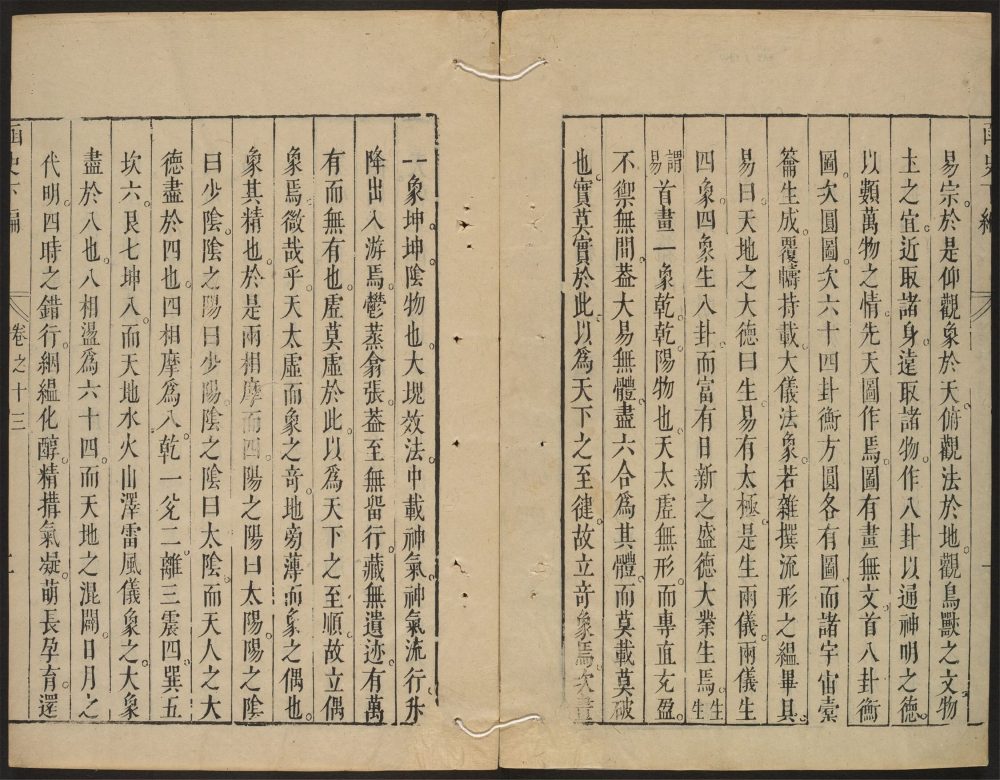 易宗於是仰觀象於天俯觀法於地觀鳥獸之文物
土之宜近取諸身遠取諸物作八卦以通神明之德
以類萬物之情先天圖作焉圖有畫無文首八卦衡
圖次圓圖次六十四卦衡方圓各有圖而諸宇宙橐
籥生成覆幬持載大儀法象若雜撰流形之縕畢具
易曰天地之大德曰生易有太極是生兩儀兩儀生
四象四象生八卦而富有日新之盛德大業生焉生生
謂易首畫一象乾乾陽物也天太虛無形而專直充盈
不禦無間蓋大易無體盡六合爲其體而莫載莫破
也實莫實於此以爲天下之至健故立奇象焉次畫
一象坤坤陰物也大塊效法中載神氣神氣流行升
降出入游焉鬱蒸翕張蓋至無留行藏無遺迹有萬
有而無有也虛莫虛於此以爲天下之至順故立偶
象焉微哉乎天太虛而象之奇地旁薄而象之偶也
象其精也於是兩相摩而四陽之陽曰太陽陽之陰
曰少陰陰之陽曰少陽陰之陰曰太陰而天人之大
德盡於四也四相摩爲八乾一兌二離三震四巽五
坎六艮七坤八而天地水火山澤雷風儀象之大象
盡於八也八相盪爲六十四而天地之混闢日月之
代明四時之錯行絪縕化醇精搆氣凝萌長孕育遝
函史下編
卷之十三